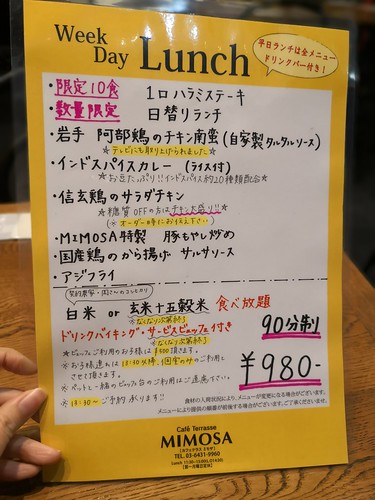 Week Day Lunch
平日ランチは全メニュー
ドリンクバー付き!
・限定10食 1口ハラミステーキ
・数量限定 日替りランチ
・岩手 阿部鶏のチキン南蛮(自家製タルタルソース)
☆テレビにも取り上げられました☆
・インドスパイスカレー(ライス付)
☆お豆たっぷり!!インドスパイス約20種類配合☆
・信玄鶏のサラダチキン
☆糖質OFFの方はチキン大盛り!!☆
(※オーダー時にお伝え下さい)
・MIMOSA特製 豚もやし炒め
・国産鶏のから揚げ サルサソース
・アジフライ
白米 or 玄米十五穀米 食べ放題
※なくなり次第終了
ドリンクバイキング・サービスビュッフェ付き
90分制
※なくなり次第終了
★ビュッフェご利用のお子様は¥400頂きます。
させて頂きます。
・ペットと一緒のビュッフェ台のご利用はご遠慮下さい。
¥980-
食材の入荷状況により、メニューが変更になる場合がございます。
メニューにより提供の順番が前後する場合がございます。ご了承くださいませ。
Café Terrasse
MIMOSA
[カフェテラス ミモザ]
TEL. 03-6431-9960